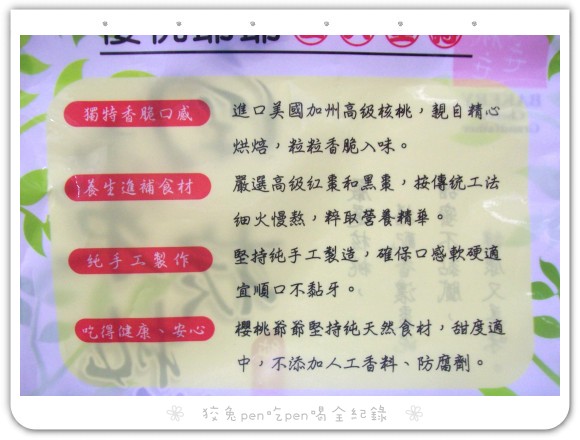 櫻桃爺爺
獨特香脆口感
進口美國加州高級核桃，親自精心
烘焙，粒粒香脆入味。
養生進補食材
嚴選高級紅棗和黑棗，按傳統工法
細火慢熬，粹取營養精華。
純手工製作
堅持純手工製造，確保口感軟硬適
宜順口不黏牙。
吃得健康、安心
櫻桃爺爺堅持純天然食材，甜度適
中，不添加人工香料、防腐劑。
狡兔pen吃pen喝全紀錄